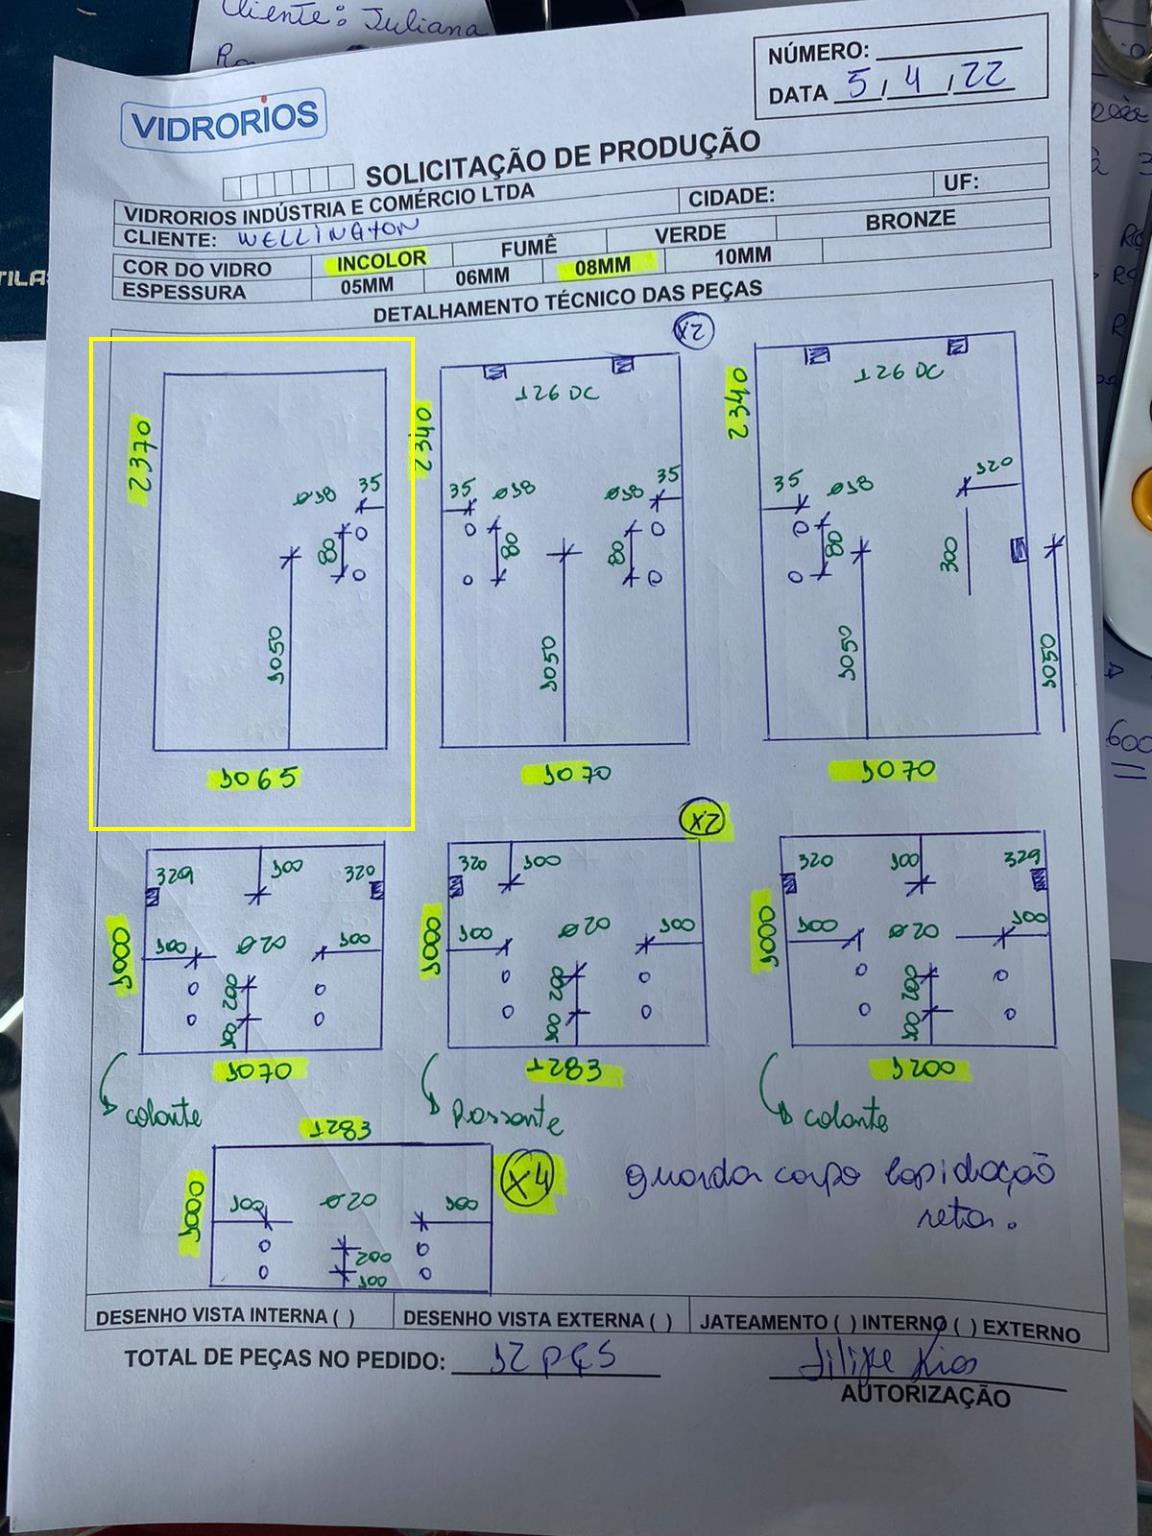 Cliente: Juliana
NÚMERO:
DATA 5 / 4 / 22
VIDRORIOS
SOLICITAÇÃO DE PRODUÇÃO
VIDRORIOS INDÚSTRIA E COMÉRCIO LTDA
CIDADE:
UF:
CLIENTE: WELLINGTON
COR DO VIDRO INCOLOR FUMÊ VERDE BRONZE
ESPESSURA 05MM 06MM 08MM 10MM
DETALHAMENTO TÉCNICO DAS PEÇAS
2370
35
ø18
80
1050
1065
X2
2340
126 DC
35 ø18
ø18 35
80
80
1050
1070
2340
126 DC
35 ø18
120
80
300
1050
1050
1070
329 100 320
1000
100 ø20 100
200
100
1070
colante
X2
320 100
1000
100 ø20 100
200
100
1283
Passante
320 100 329
1000
100 ø20 100
200
100
1200
colante
1283
X4
1000
100 ø20 100
200
100
guarda corpo lapidação
reta.
DESENHO VISTA INTERNA ( ) DESENHO VISTA EXTERNA ( ) JATEAMENTO ( ) INTERNO ( ) EXTERNO
TOTAL DE PEÇAS NO PEDIDO: 12 PÇS
Filipe Rios
AUTORIZAÇÃO
600